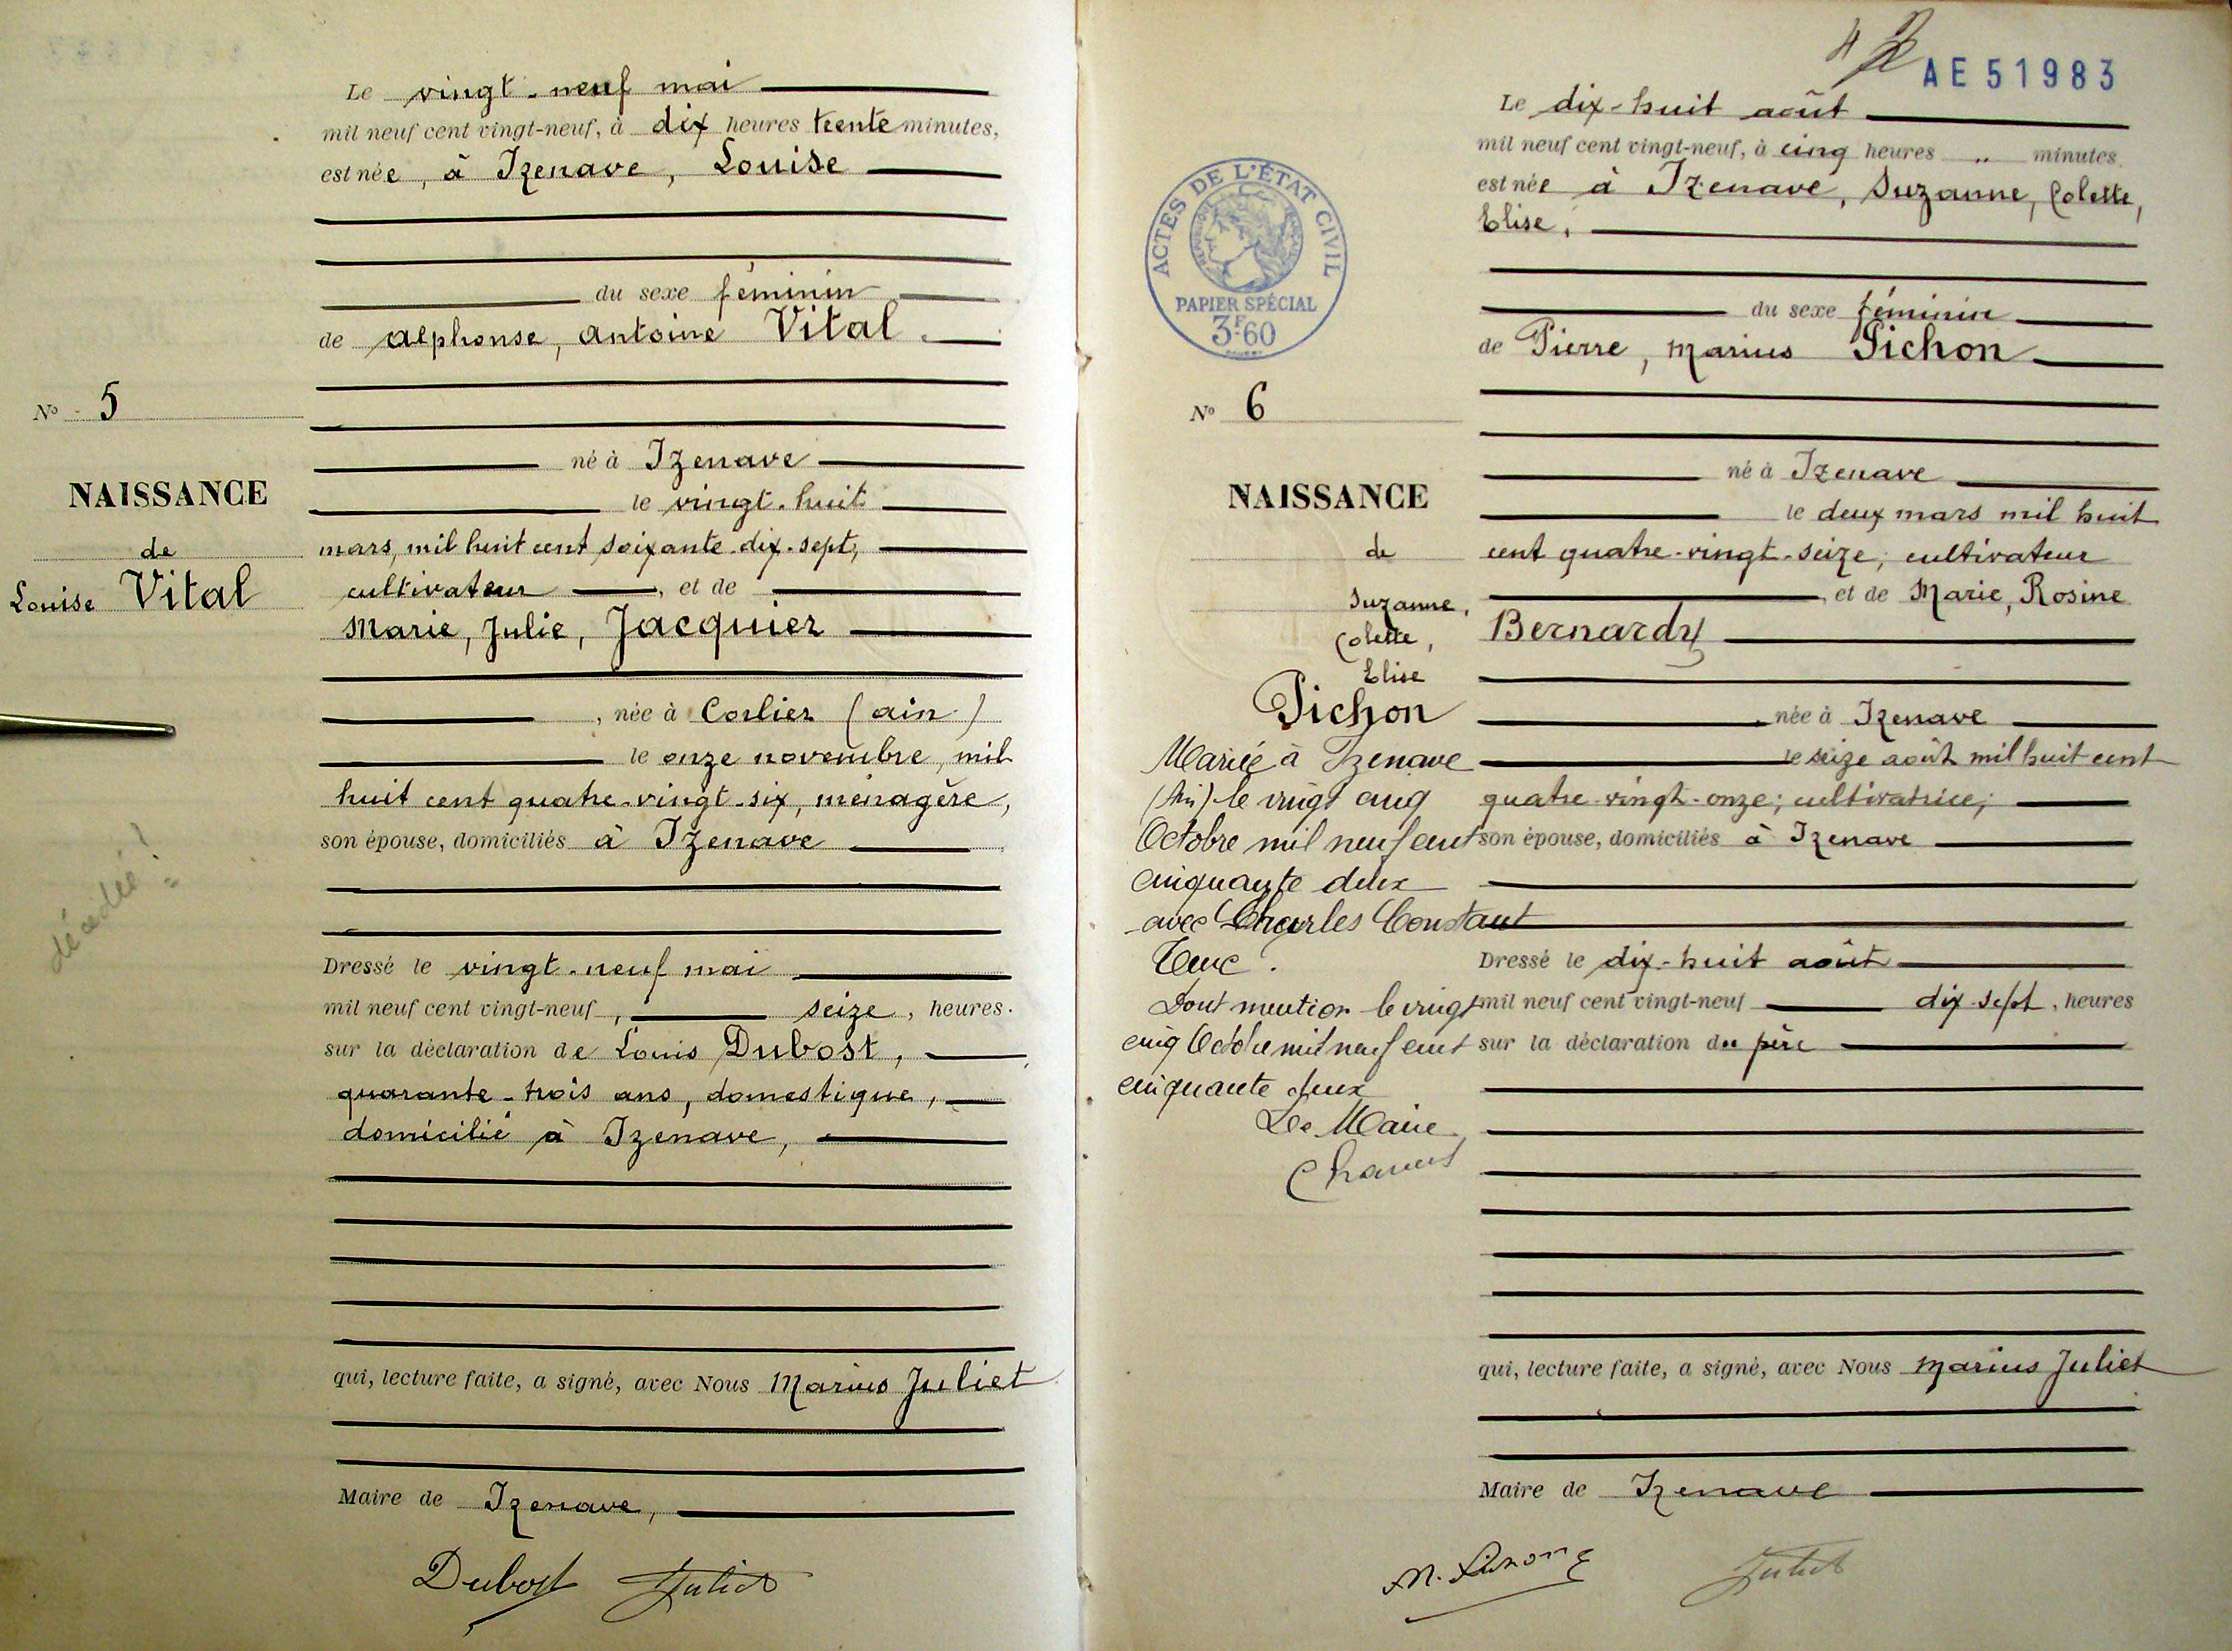 Le vingt-neuf mai
mil neuf cent vingt-neuf, à dix heures trente minutes,
est née, à Izenave, Louise
du sexe féminin
de Alphonse, Antoine Vital.
N° 5
né à Izenave
NAISSANCE
le vingt-huit
de
mars, mil huit cent soixante-dix-sept,
Louise Vital
cultivateur, et de
Marie, Julie, Jacquier
, née à Corlier (Ain)
le onze novembre, mil
huit cent quatre-vingt-six, ménagère,
son épouse, domiciliés à Izenave
décédée!
Dressé le vingt-neuf mai
mil neuf cent vingt-neuf, seize, heures.
sur la déclaration de Louis Dubost,
quarante-trois ans, domestique,
domicilié à Izenave,
qui, lecture faite, a signé, avec Nous Marius Juliet
Maire de Izenave,
Dubost Juliet
4
AE51983
Le dix-huit août
mil neuf cent vingt-neuf, à cinq heures " minutes
est née à Izenave, Suzanne, Colette,
Elise,
ACTES DE L'ÉTAT CIVIL
RÉPUBLIQUE FRANÇAISE
PAPIER SPÉCIAL
3F.60
du sexe féminin
de Pierre, Marius Pichon
N° 6
né à Izenave
NAISSANCE
le deux mars mil huit
de
cent quatre-vingt-seize, cultivateur
Suzanne,
Colette,
Elise
Pichon
et de Marie, Rosine
Bernardy
née à Izenave
le seize août mil huit cent
quatre-vingt-onze; cultivatrice;
son épouse, domiciliés à Izenave
Mariée à Izenave
(Ain) le vingt cinq
Octobre mil neuf cent
cinquante deux
avec Charles Constant
Dont mention le vingt
cinq Octobre mil neuf cent
cinquante deux
Le Maire
Dressé le dix-huit août
mil neuf cent vingt-neuf dix-sept, heures
sur la déclaration du père
qui, lecture faite, a signé, avec Nous Marius Juliet
Maire de Izenave
Juliet